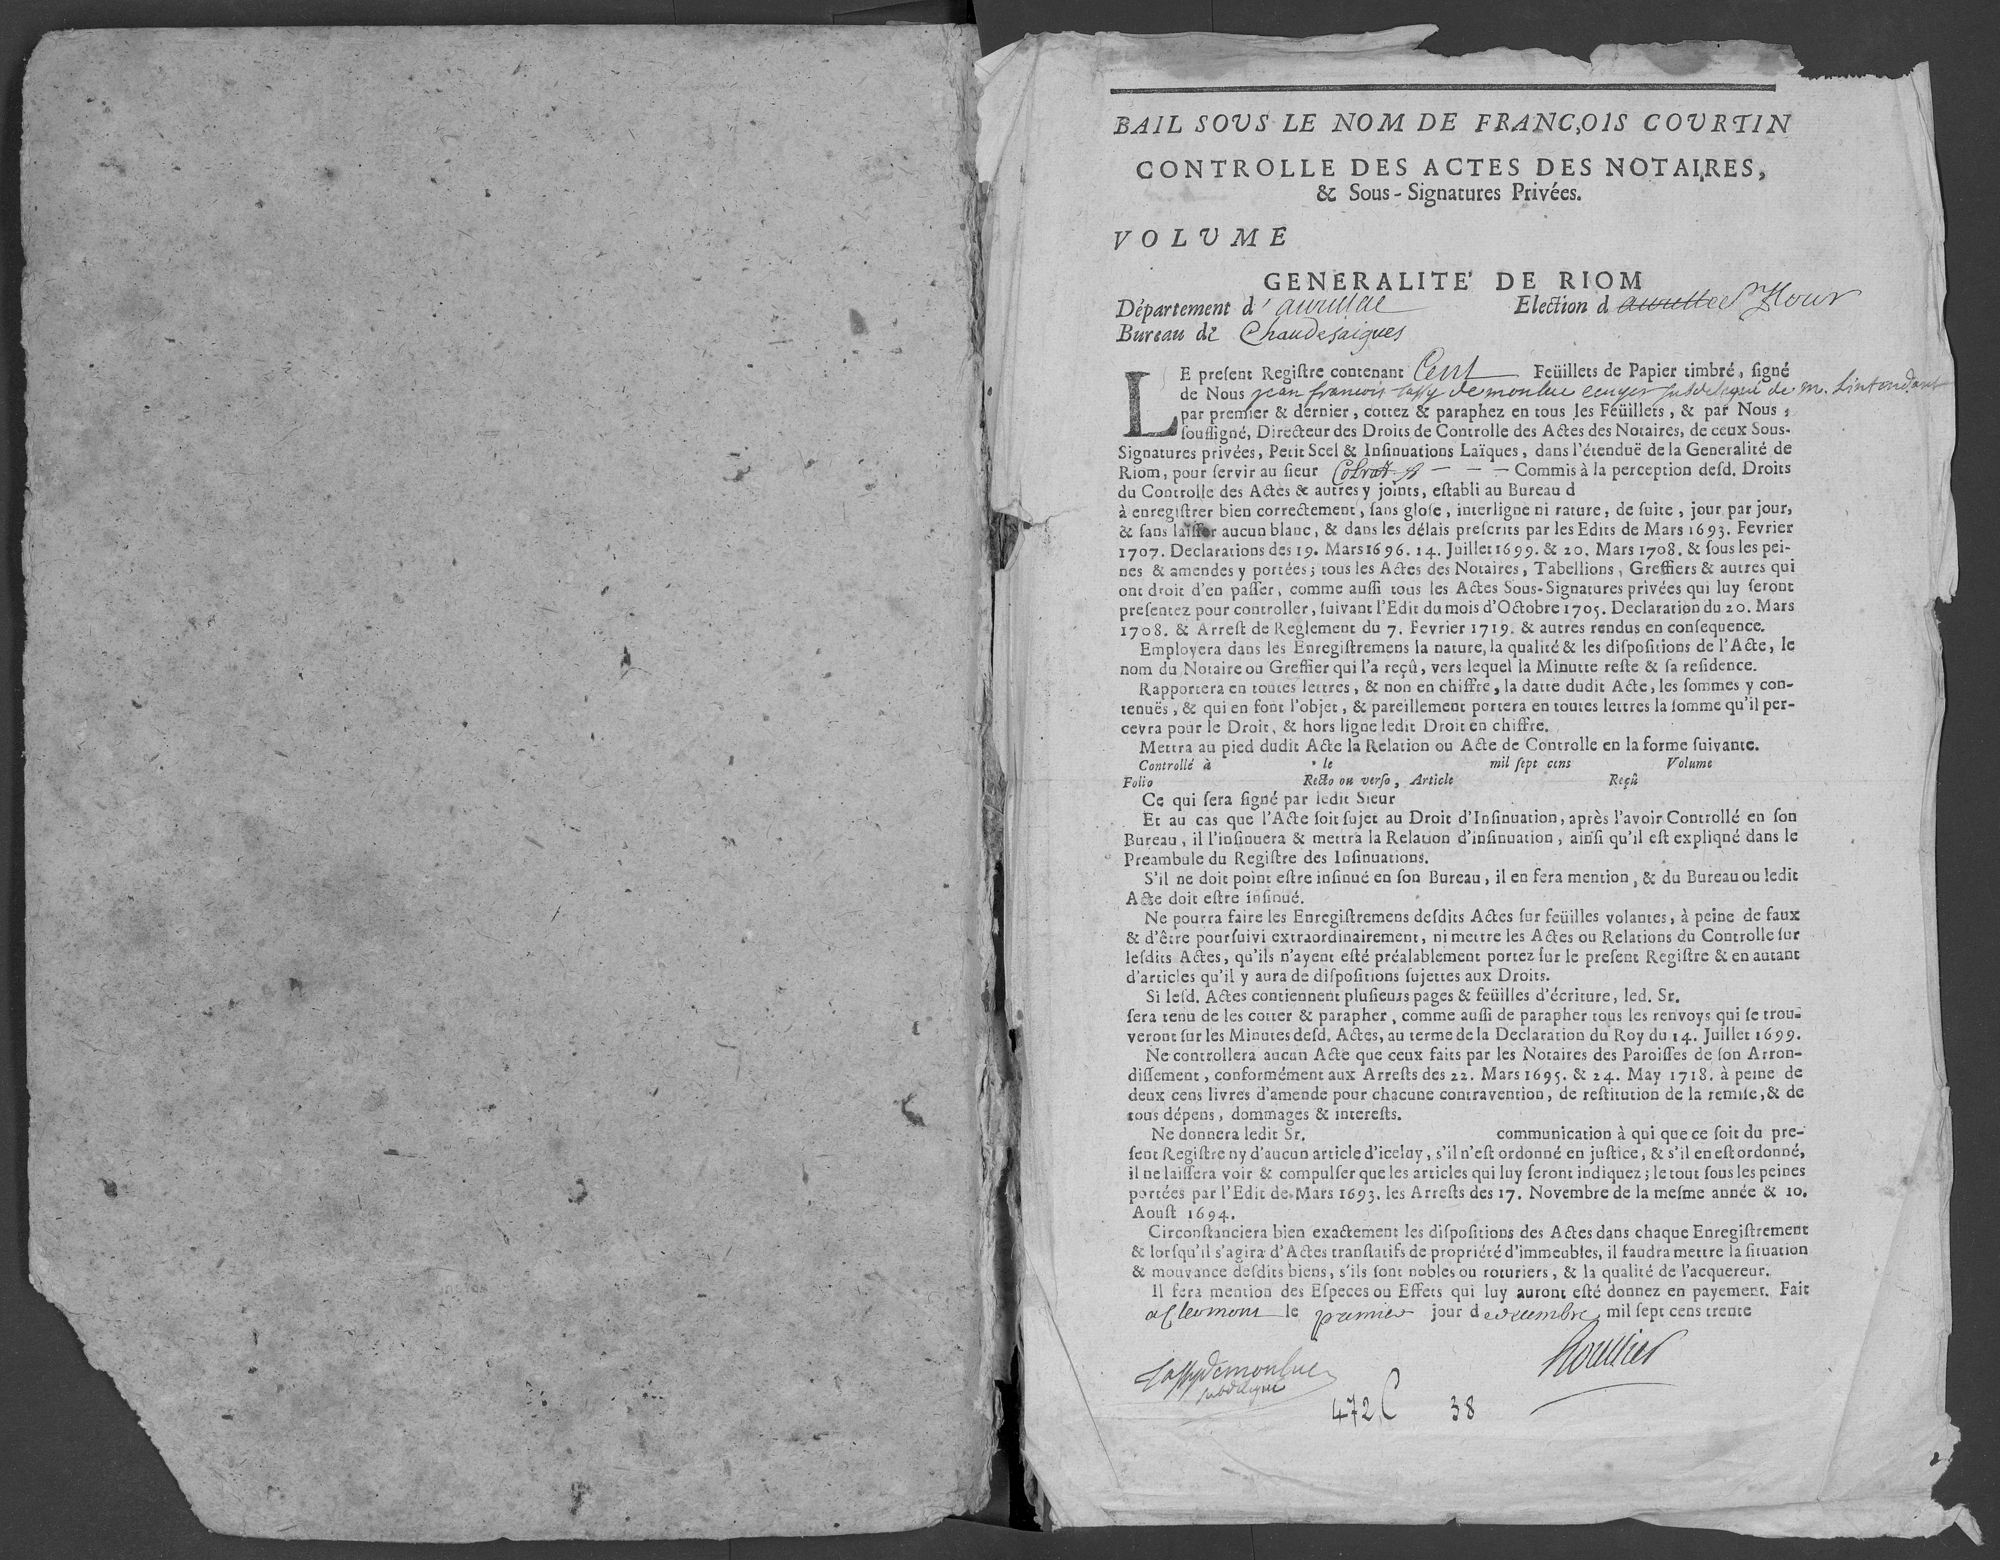 BAIL SOUS LE NOM DE FRANC,OIS COURTIN
CONTROLLE DES ACTES DES NOTAIRES,
& Sous-Signatures Privées.
VOLUME
GENERALITE' DE RIOM
Département d' aurillac Election d aurillac St Flour
Bureau de Chaudesaigues
LE present Registre contenant Cent Feüillets de Papier timbré, signé
de Nous jean francois Lassy de monluc ecuyer subdelegué de m. Lintendant
par premier & dernier, cottez & paraphez en tous les Feüillets, & par Nous,
soussigné, Directeur des Droits de Controlle des Actes des Notaires, de ceux Sous-
Signatures privées, Petit Scel & Insinuations Laïques, dans l'étenduë de la Generalité de
Riom, pour servir au sieur Colrat - - - Commis à la perception desd. Droits
du Controlle des Actes & autres y joints, establi au Bureau d
à enregistrer bien correctement, sans glose, interligne ni rature, de suite, jour par jour,
& sans laisser aucun blanc, & dans les délais prescrits par les Edits de Mars 1693. Fevrier
1707. Declarations des 19. Mars 1696. 14. Juillet 1699. & 20. Mars 1708. & sous les pei-
nes & amendes y portées; tous les Actes des Notaires, Tabellions, Greffiers & autres qui
ont droit d'en passer, comme aussi tous les Actes Sous-Signatures privées qui luy seront
presentez pour controller, suivant l'Edit du mois d'Octobre 1705. Declaration du 20. Mars
1708. & Arrest de Reglement du 7. Fevrier 1719. & autres rendus en consequence.
Employera dans les Enregistremens la nature, la qualité & les dispositions de l'Acte, le
nom du Notaire ou Greffier qui l'a reçû, vers lequel la Minutte reste & sa residence.
Rapportera en toutes lettres, & non en chiffre, la datte dudit Acte, les sommes y con-
tenuës, & qui en font l'objet, & pareillement portera en toutes lettres la somme qu'il per-
cevra pour le Droit, & hors ligne ledit Droit en chiffre.
Mettra au pied dudit Acte la Relation ou Acte de Controlle en la forme suivante.
Controllé à le mil sept cens Volume
Folio Recto ou verso, Article Reçû
Ce qui sera signé par ledit Sieur
Et au cas que l'Acte soit sujet au Droit d'Insinuation, après l'avoir Controllé en son
Bureau, il l'insinuera & mettra la Relation d'insinuation, ainsi qu'il est expliqué dans le
Preambule du Registre des Insinuations.
S'il ne doit point estre insinué en son Bureau, il en fera mention, & du Bureau ou ledit
Acte doit estre insinué.
Ne pourra faire les Enregistremens desdits Actes sur feüilles volantes, à peine de faux
& d'être poursuivi extraordinairement, ni mettre les Actes ou Relations du Controlle sur
lesdits Actes, qu'ils n'ayent esté préalablement portez sur le present Registre & en autant
d'articles qu'il y aura de dispositions sujettes aux Droits.
Si lesd. Actes contiennent plusieurs pages & feüilles d'écriture, led. Sr.
sera tenu de les cotter & parapher, comme aussi de parapher tous les renvoys qui se trou-
veront sur les Minutes desd. Actes, au terme de la Declaration du Roy du 14. Juillet 1699.
Ne controllera aucun Acte que ceux faits par les Notaires des Paroisses de son Arron-
dissement, conformément aux Arrests des 22. Mars 1695. & 24. May 1718. à peine de
deux cens livres d'amende pour chacune contravention, de restitution de la remise, & de
tous dépens, dommages & interests.
Ne donnera ledit Sr. communication à qui que ce soit du pre-
sent Registre ny d'aucun article d'iceluy, s'il n'est ordonné en justice, & s'il en est ordonné,
il ne laissera voir & compulser que les articles qui luy seront indiquez; le tout sous les peines
portées par l'Edit de Mars 1693. les Arrests des 17. Novembre de la mesme année & 10.
Aoust 1694.
Circonstanciera bien exactement les dispositions des Actes dans chaque Enregistrement
& lorsqu'il s'agira d'Actes translatifs de propriété d'immeubles, il faudra mettre la situation
& mouvance desdits biens, s'ils sont nobles ou roturiers, & la qualité de l'acquereur.
Il fera mention des Especes ou Effets qui luy auront esté donnez en payement. Fait
a Clermont le premier jour de decembre mil sept cens trente
Lassy de monluc
subdelegué
472 C 38